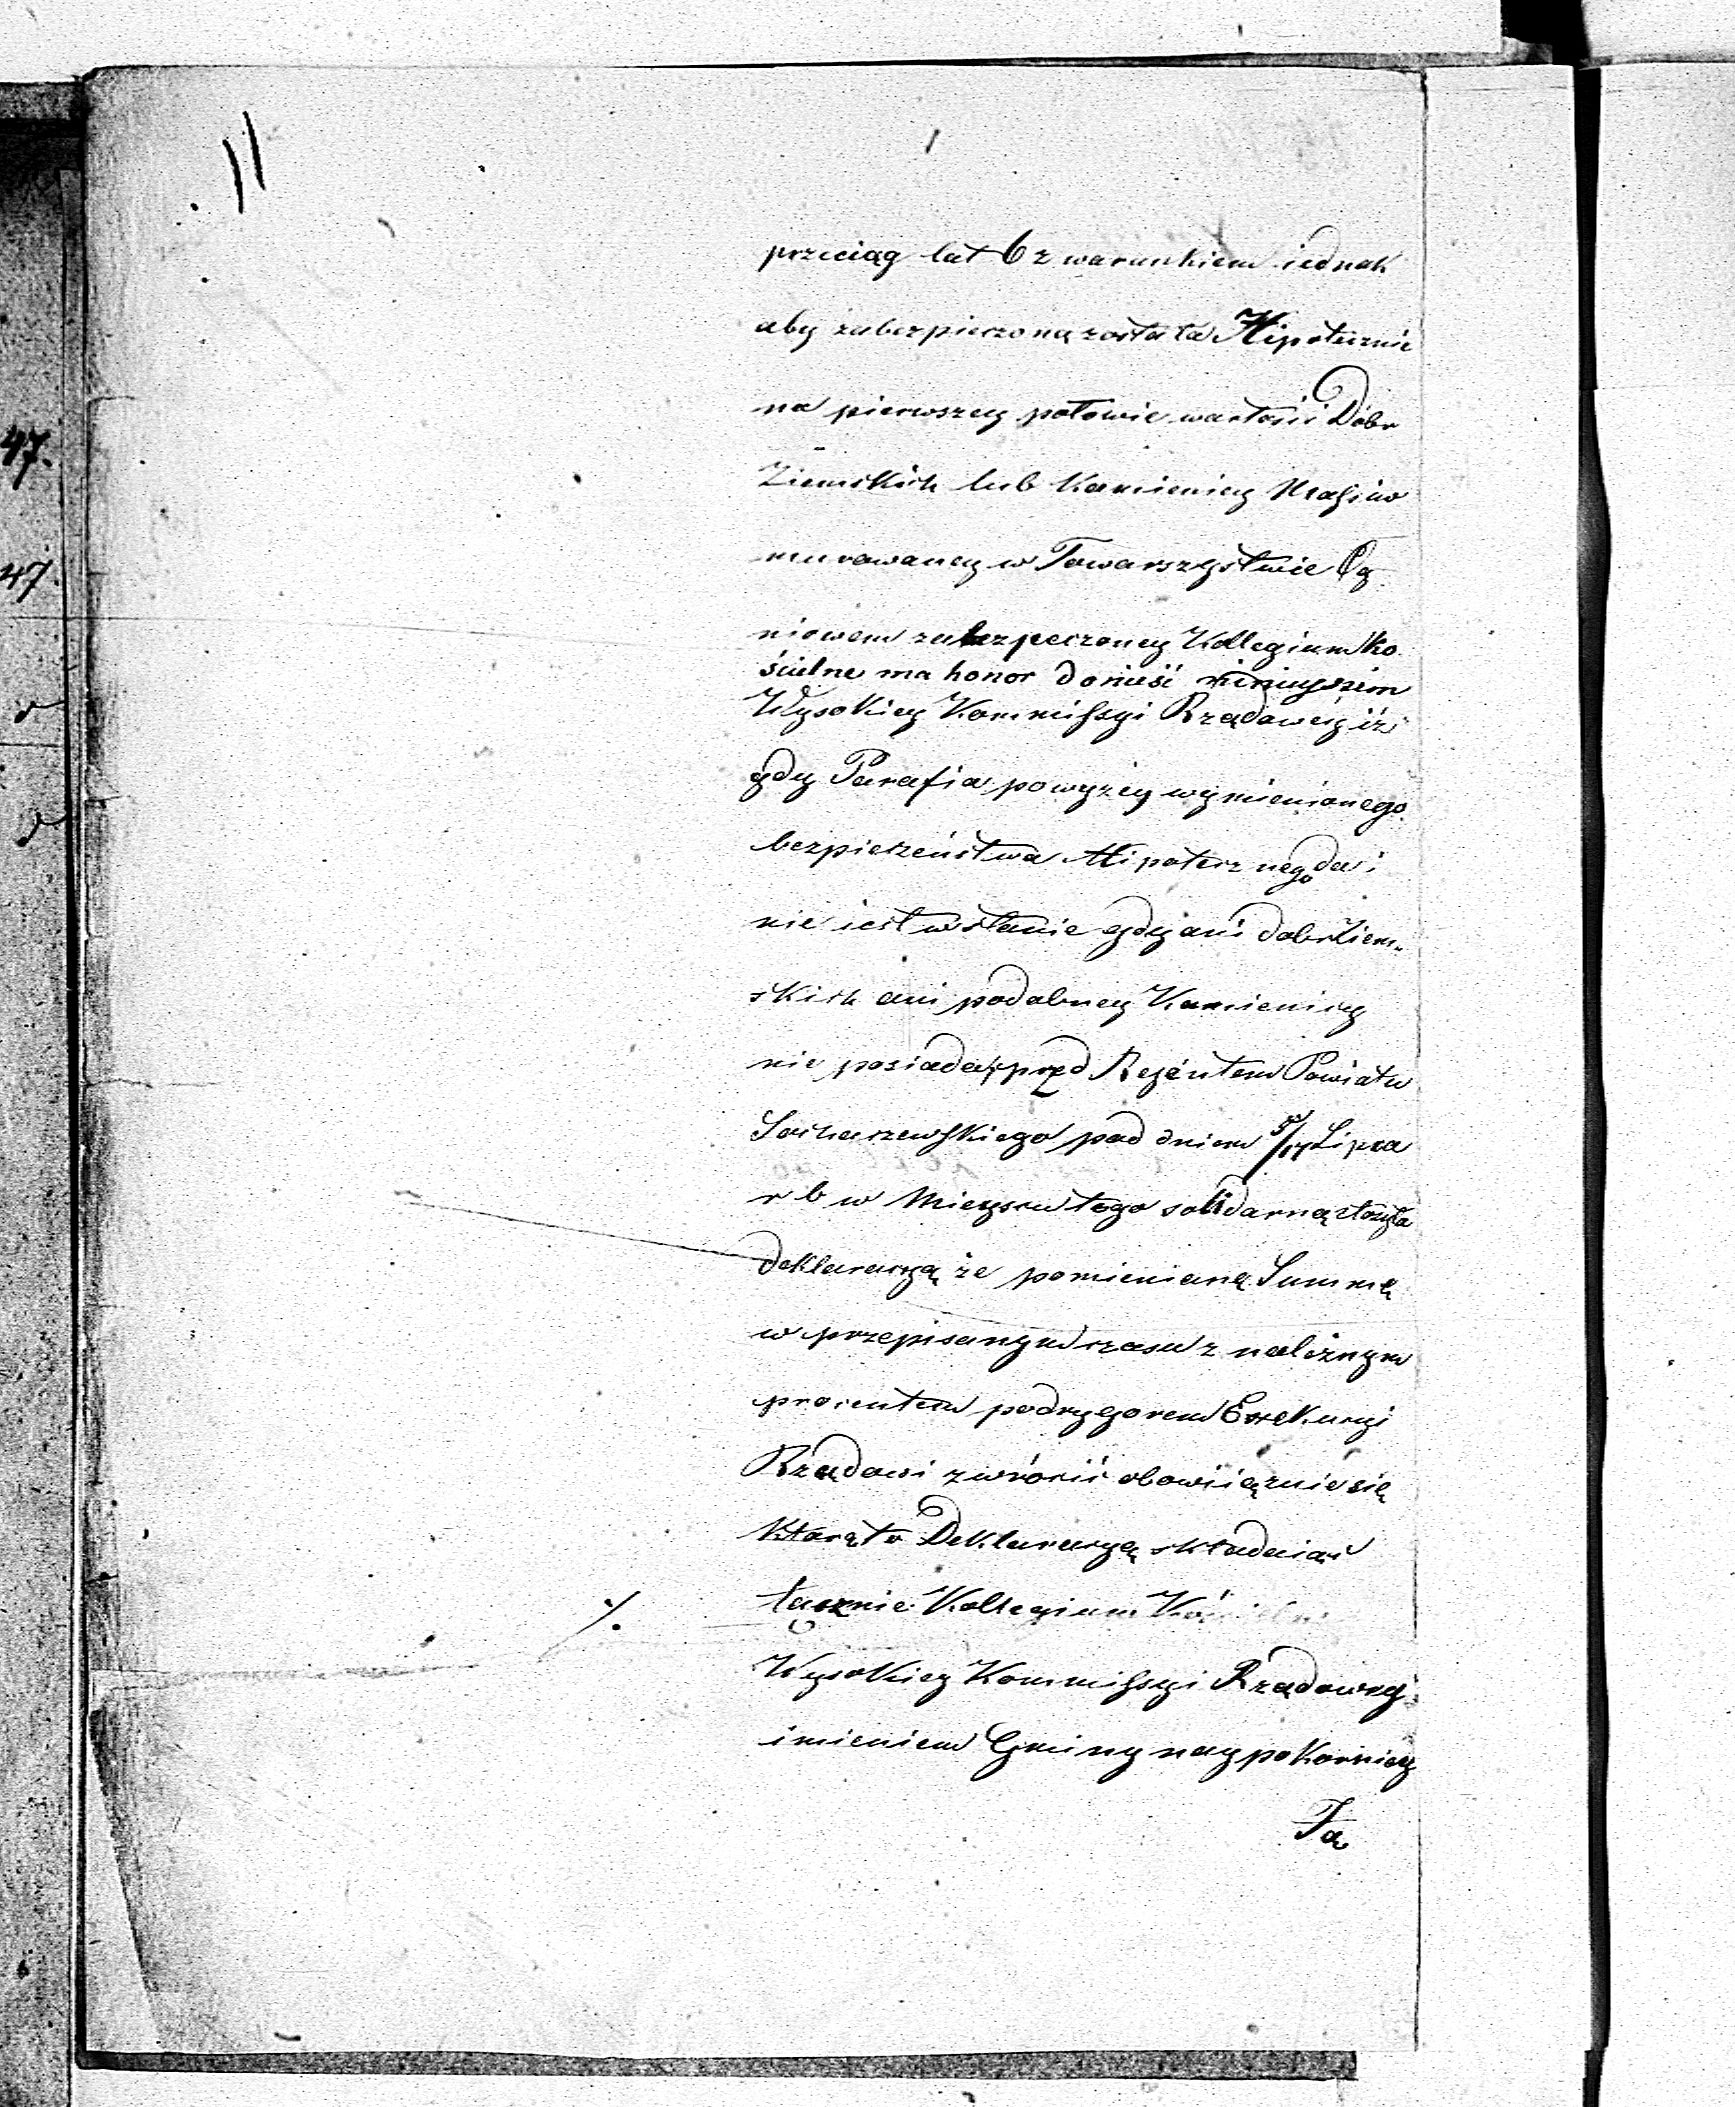 11
przeciąg lat 6 z warunkiem iednak
aby zabezpieczoną została Hipotecznie
na pierwszey połowie wartości Dóbr
Ziemskich lub Kamienicy Massiw
murowaney w Towarzystwie Og
niowem zabezpieczoney Kollegium Ko
ścielne ma honor donieść ninieyszim
Wysokiey Kommissyi Rządowey iż
gdy Parafia powyżey wymienionego
bezpieczeństwa Hipotecznego dać
nie iest w stanie gdy ani dobr Ziem
skich ani podobney Kamienicy
nie posiada, przed Regentem Powiatu
Sochaczewskiego pod dniem 5/17 Lipca
r b w Mieyscu tego solidarną złożyła
deklaracyą że pomienioną Summę
w przepisanym czasu z należnym
procentem pod rygorem Exekucyi
Rządowi zwrócić obowiięznie się
Którąto Deklaracyą składaiąc
łącznie Kollegium Kościelne
Wysokiey Kommissyi Rządowey
imieniem Gminy naypokorniey
Ta
47.
47.